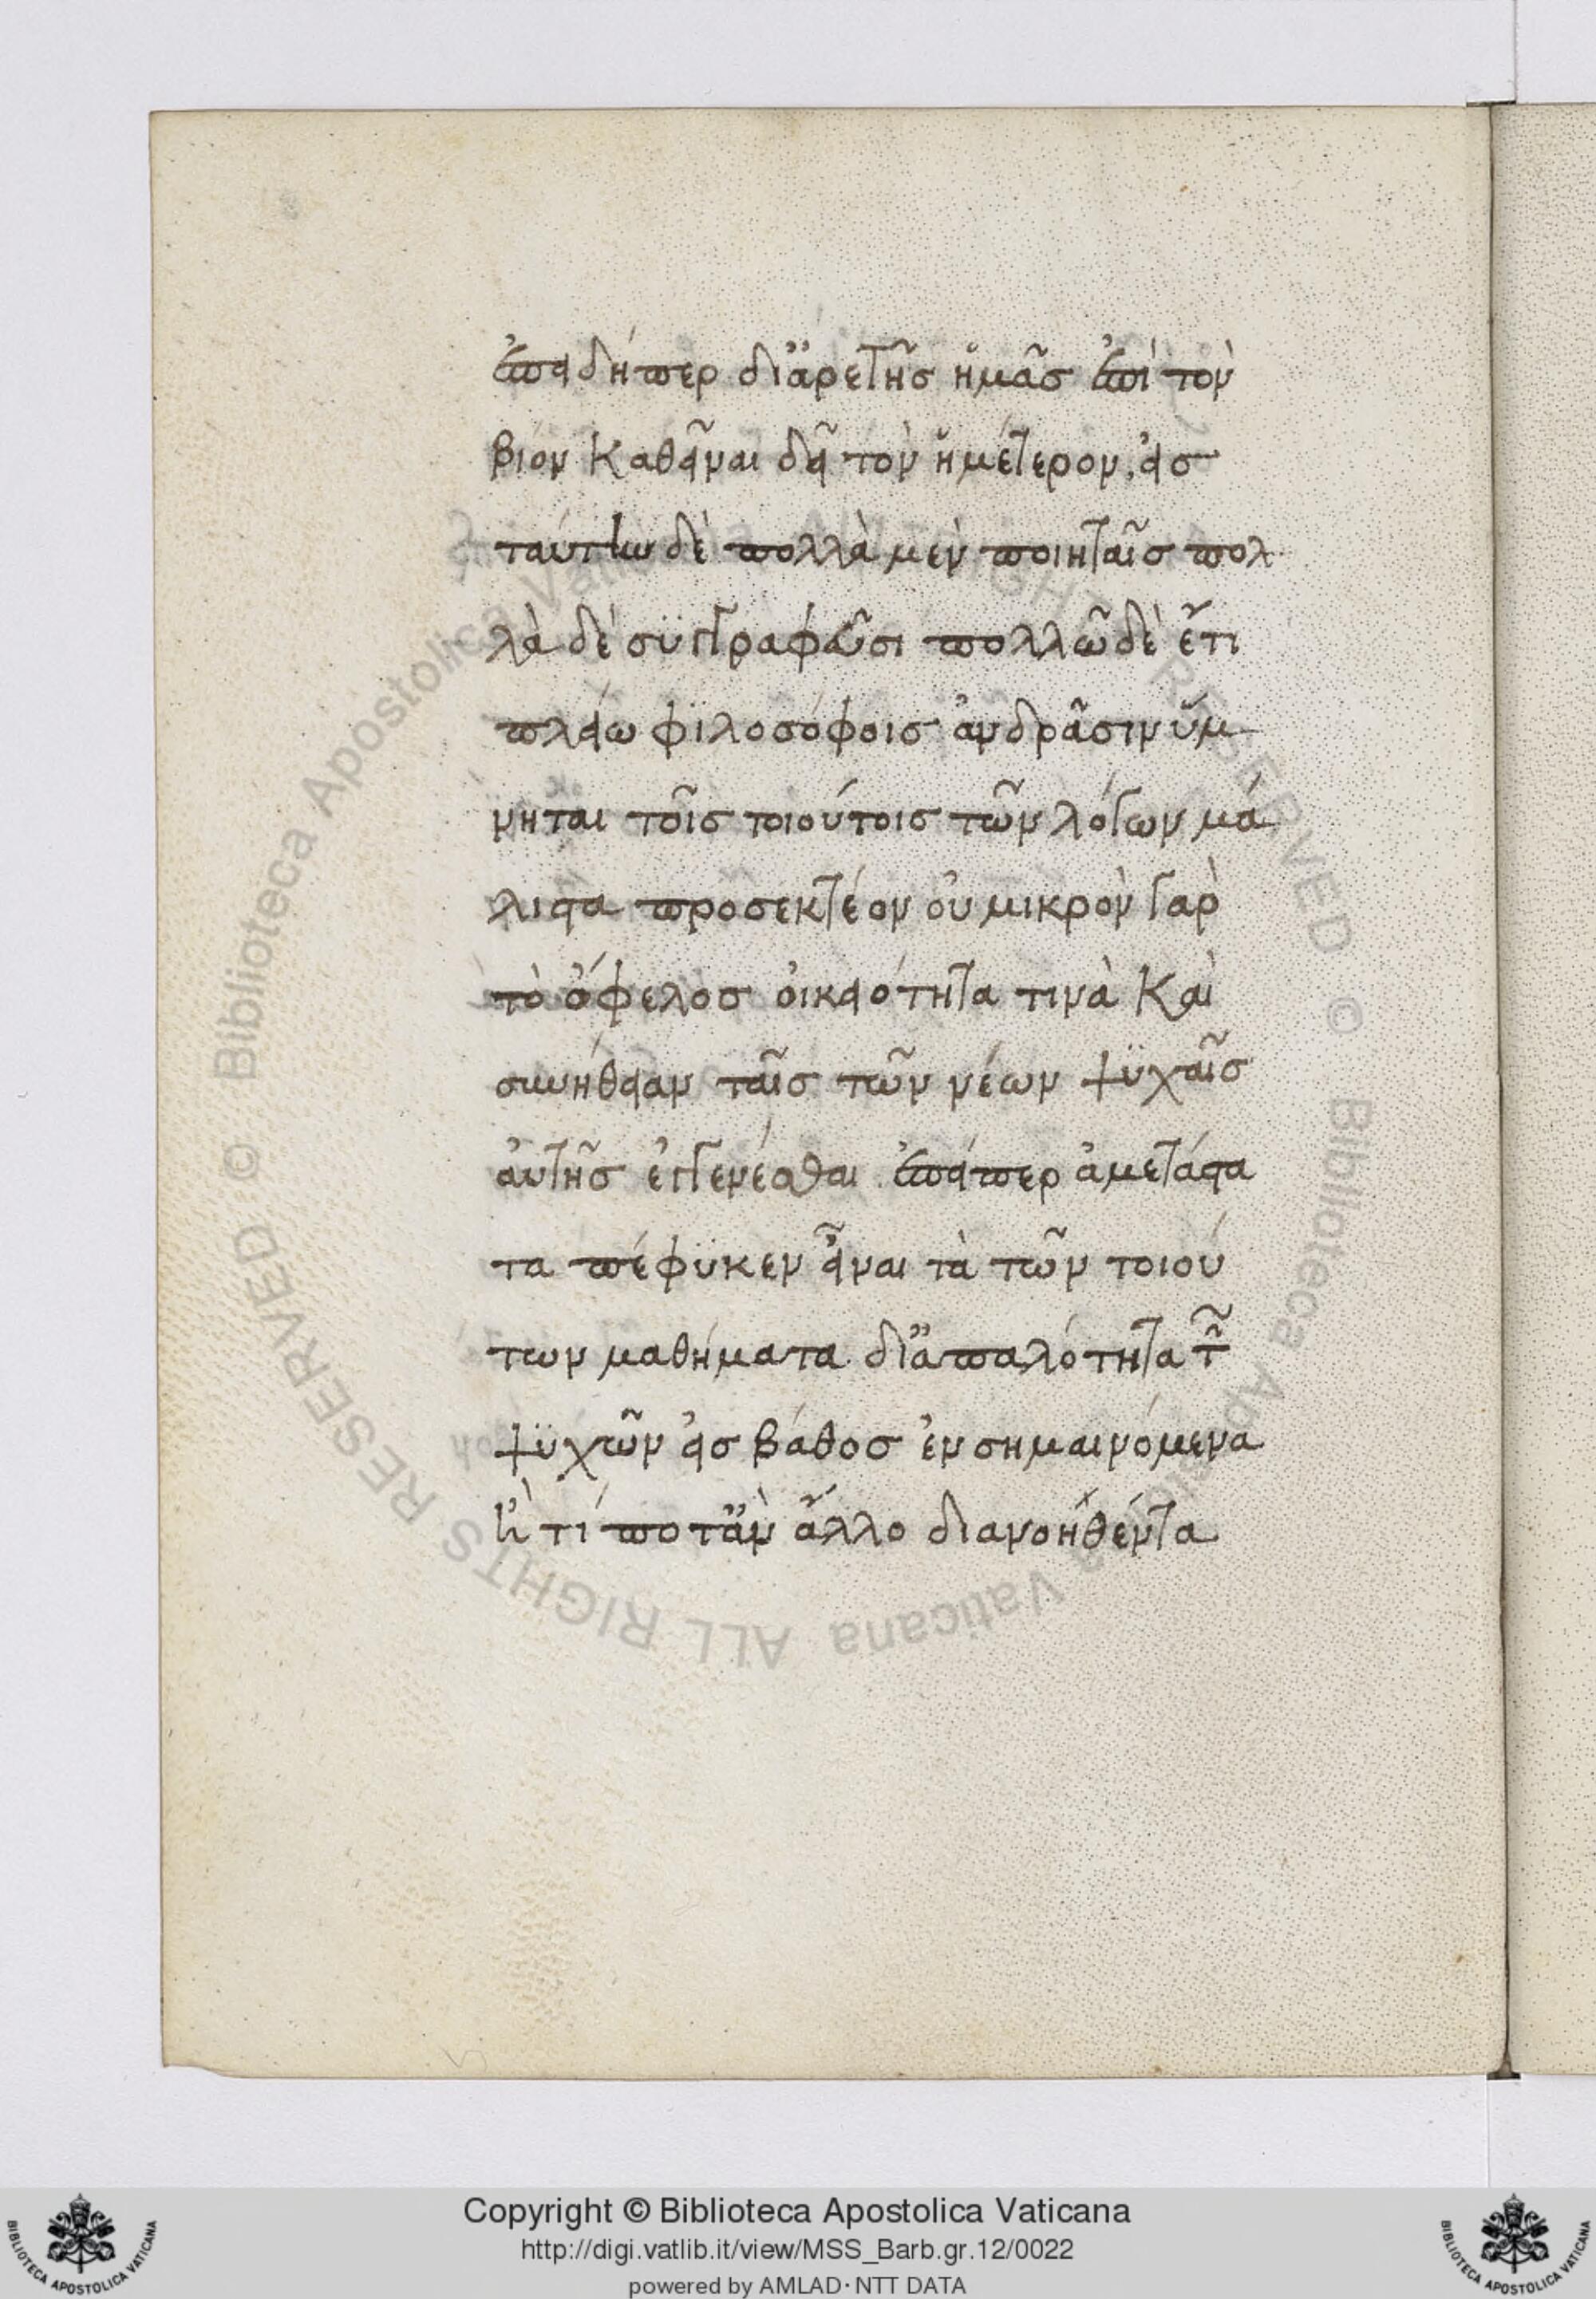 ἐπειδήπερ δι ἀρετῆσ ἡμᾶσ ἐπί τὸν
βίον καθεῖναι δεῖ τὸν ἡμέτερον, εἰσ
ταύτην δὲ πολλὰ μὲν ποιηταῖσ πολ
λὰ δὲ συγγραφεῦσι πολλῶ δὲ ἔτι
πλείω φιλοσόφοισ ἀνδρᾶσιν ὕμ
νηται τοῖσ τοιούτοισ τῶν λόγων μά
λιστα προσεκτέον οὐ μικρὸν γὰρ
τὸ ὄφελοσ οἰκειότητα τινὰ καὶ
συνήθειαν ταῖσ τῶν νέων ψυχαῖσ
ἀυτῆσ ἐγγενέσθαι ἐπείπερ ἀμετάστα
τα πέφυκεν εἶναι τὰ τῶν τοιού
των μαθήματα δι ἁπαλότητα τῶν
ψυχῶν εἰσ βάθοσ ἐνσημαινόμενα
ἢ τί ποτ ἂν ἄλλο διανοηθέντα
Copyright © Biblioteca Apostolica Vaticana
http://digi.vatlib.it/view/MSS_Barb.gr.12/0022
powered by AMLAD·NTT DATA
BIBLIOTECA APOSTOLICA VATICANA
BIBLIOTECA APOSTOLICA VATICANA
© Biblioteca Apostolica Vaticana ALL RIGHTS RESERVED © Biblioteca Apostolica Vaticana ALL RIGHTS RESERVED